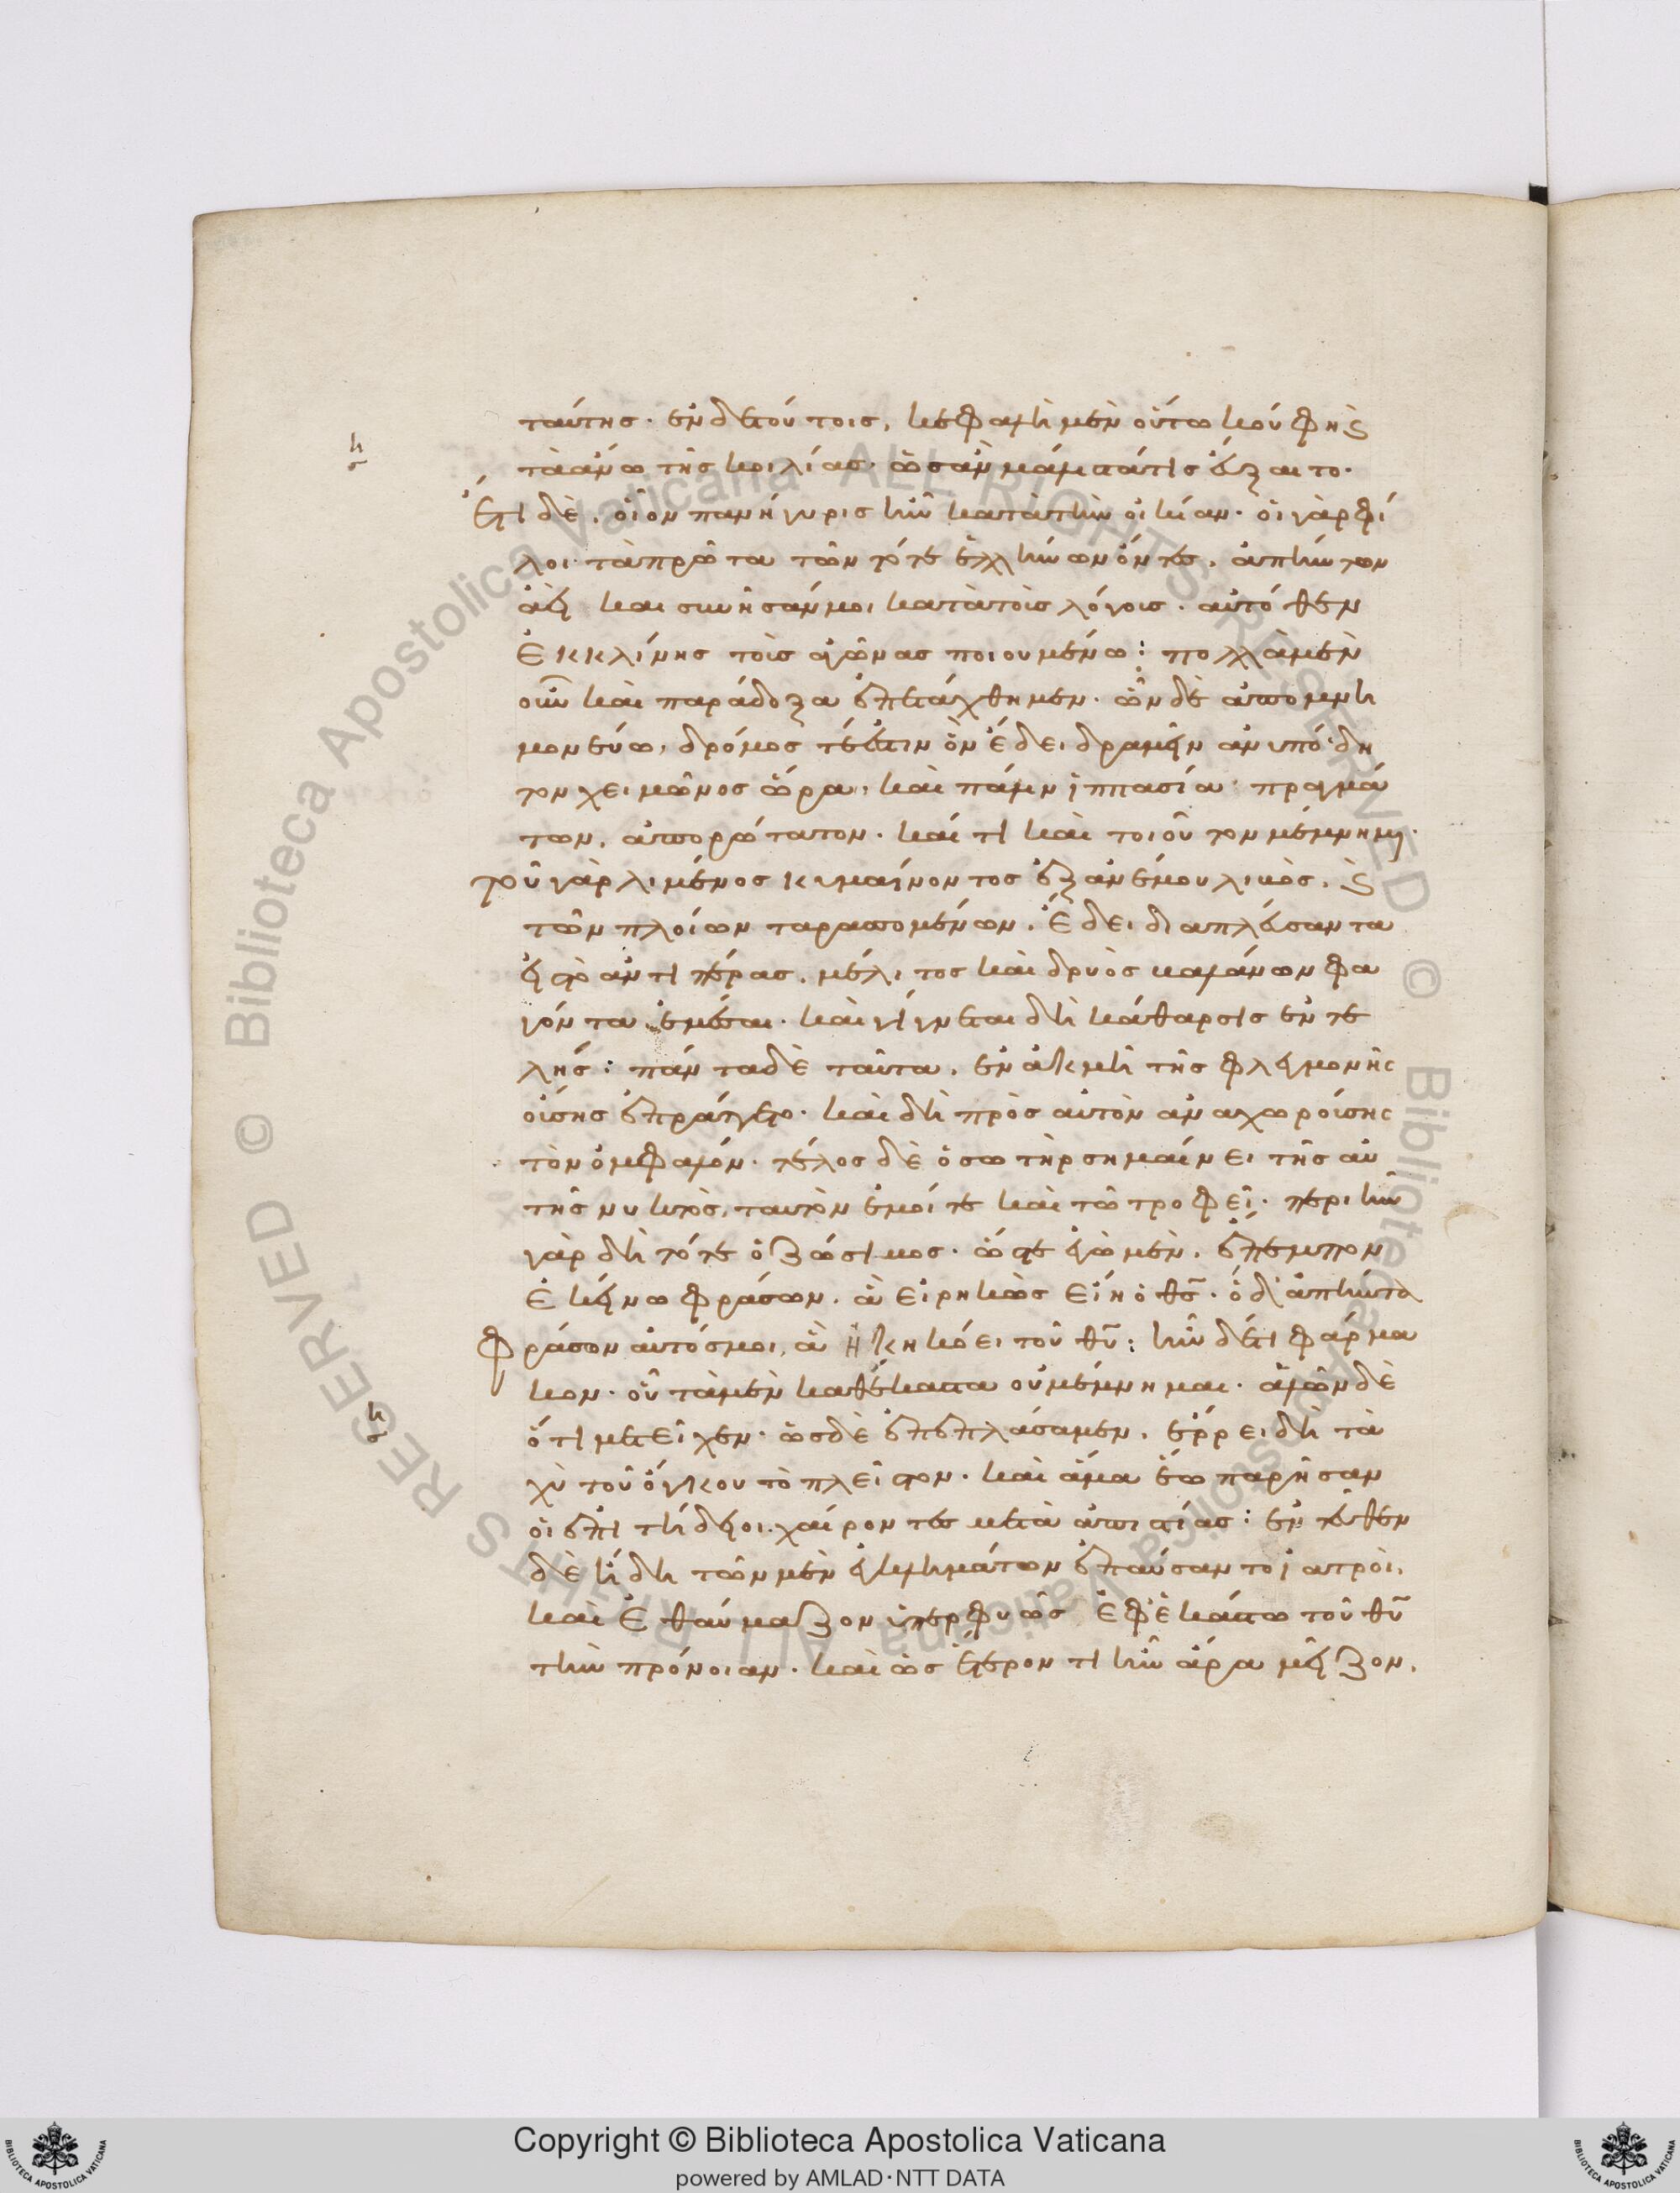 ταύτης· ἐν δὲ τούτοις, κεφαλὴ μὲν οὕτω κούφη ϛ
τὰ ἄνω τῆς κοιλίας· ὡς ἂν μάλιστά τις εὔξαιτο·
ἔτι δὲ, οἷον πανήγυρις ἦν κατὰ τὴν οἰκίαν· οἱ γὰρ φί
λοι τὰ πρῶτα τῶν τότε ἑλλήνων ὄντες, ἀπήντων
ἀεὶ καὶ συνῆσάν μοι κατὰ τοῖς λόγοις· αὐτόθεν
ἐκ κλίνης τοῖς ἀγῶνας ποιουμένω: πολλὰ μὲν
οὖν καὶ παράδοξα ἐπετάχθημεν· ὧν δὲ ἀπομνη
μονεύω, δρόμος τέ ἐστιν ὃν ἔδει δραμεῖν ἀνυπόδη
τον χειμῶνος ὥρα, καὶ πάλιν ἱππασία πραγμά
των, ἀπορώτατον· καί τι καὶ τοιοῦτον μέμνημαι·
τοῦ γὰρ λιμένος κυμαίνοντος ἐξ ἀνέμου λιβὸς, ϛ
τῶν πλοίων ταρασσομένων, ἔδει διαπλεύσαντα
εἰς τὸ ἀντιπέρας, μέλιτος καὶ δρυὸς βαλάνων φα
γόντα, ἐμέσαι· καὶ γίγνεται δὴ κάθαρσις ἐντε
λής: πάντα δὲ ταῦτα, ἐν ἀκμῇ τῆς φλεγμονῆς
οὔσης ἐπράττετο· καὶ δὴ πρὸς αὐτὸν ἀναχωρούσης
τὸν ὀμφαλόν· τέλος δὲ ὁ σωτὴρ σημαίνει τῆς αὐ
τῆς νυκτὸς, ταυτὸν ἐμοί τε καὶ τῶ τροφεῖ· περιῆν
γὰρ δὴ τότε ὁ ζώσιμος· ὥστε ἐγὼ μὲν, ἔπεμπον
ἐκείνω φράσων, ἃ εἰρηκὼς εἴη ὁ θς· ὁ δ' ἀπήντα
φράσων αὐτός μοι, ἃ ἠκηκόει τοῦ θυ: ἦν δέ τι φάρμα
κον· οὗ τὰ μὲν καθέκαστα οὐ μέμνημαι· ἁλῶν δὲ
ὅτι μετεῖχεν· ὡς δὲ ἐπεπλάσαμεν, ἔρρει δὴ τα
χὺ τοῦ ὄγκου τὸ πλεῖστον· καὶ ἅμα ἕω παρῆσαν
οἱ ἐπιτήδειοι χαίροντες μετὰ ἀπιστίας: ἐντεῦθεν
δὲ ἤδη τῶν μὲν ἐγκλημάτων ἐπαύσαντο ἰατροὶ,
καὶ ἐθαύμαζον ὑπερφυῶς ἐφ' ἑκάστω τοῦ θυ
τὴν πρόνοιαν· καὶ ὡς ἕτερόν τι ἦν ἄρα μεῖζον,
Copyright © Biblioteca Apostolica Vaticana
powered by AMLAD·NTT DATA